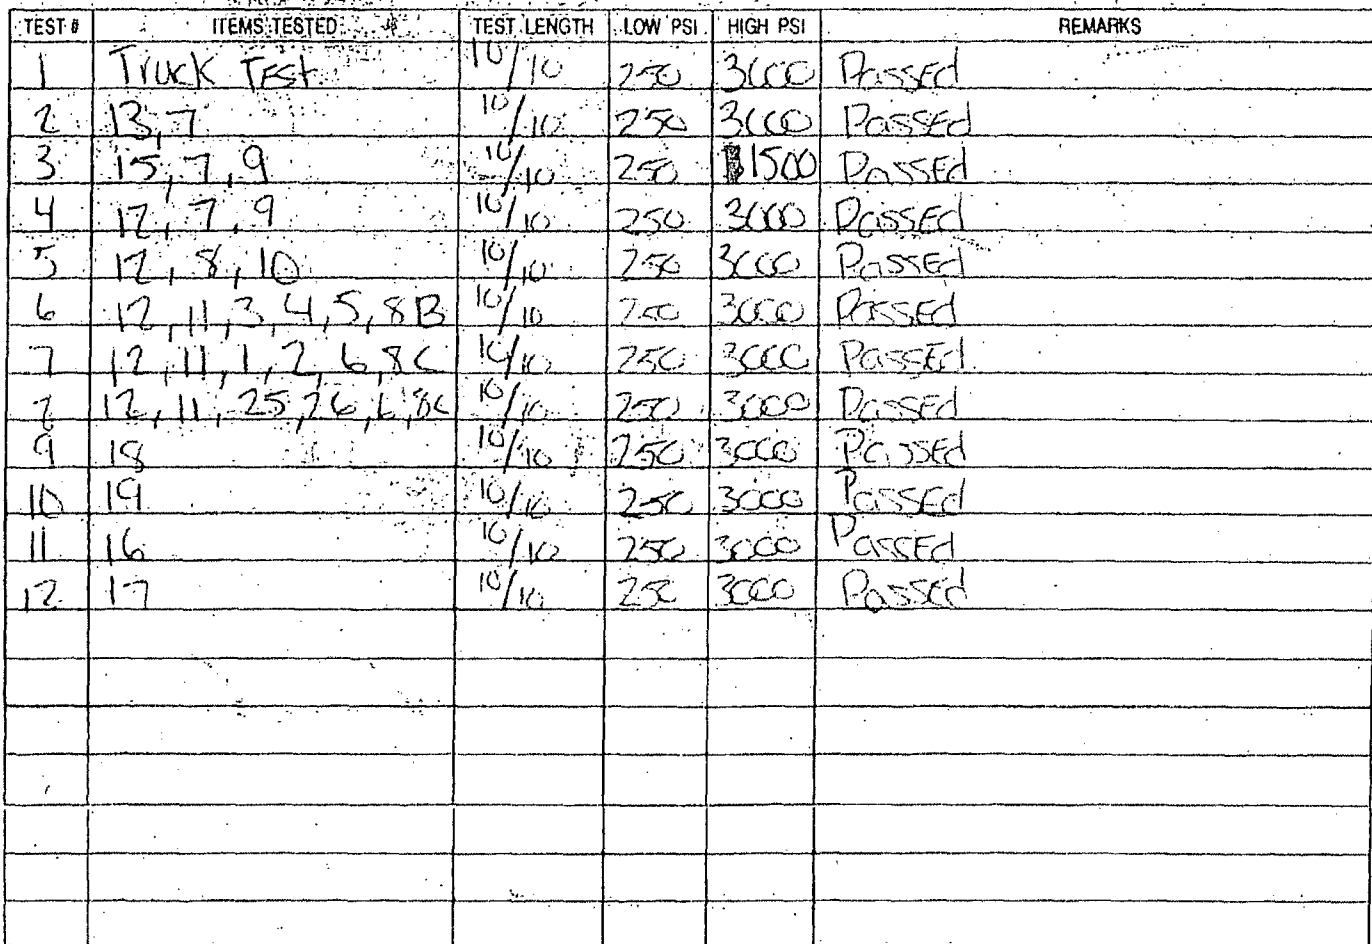 TEST # ITEMS TESTED # TEST LENGTH LOW PSI HIGH PSI REMARKS
1 Truck TEst 10/10 250 3000 PassEd
2 13,7 10/10 250 3000 PassEd
3 15,7,9 10/10 250 1500 PassEd
4 12,7,9 10/10 250 3000 PassEd
5 12,8,10 10/10 250 3000 PassEd
6 12,11,3,4,5,8B 10/10 250 3000 PassEd
7 12,11,1,2,6,8C 10/10 250 3000 PassEd
12,11,25,26,6,8C 10/10 250 3000 PassEd
9 18 10/10 250 3000 PassEd
10 19 10/10 250 3000 PassEd
11 16 10/10 250 3000 PassEd
12 17 10/10 250 3000 PassEd